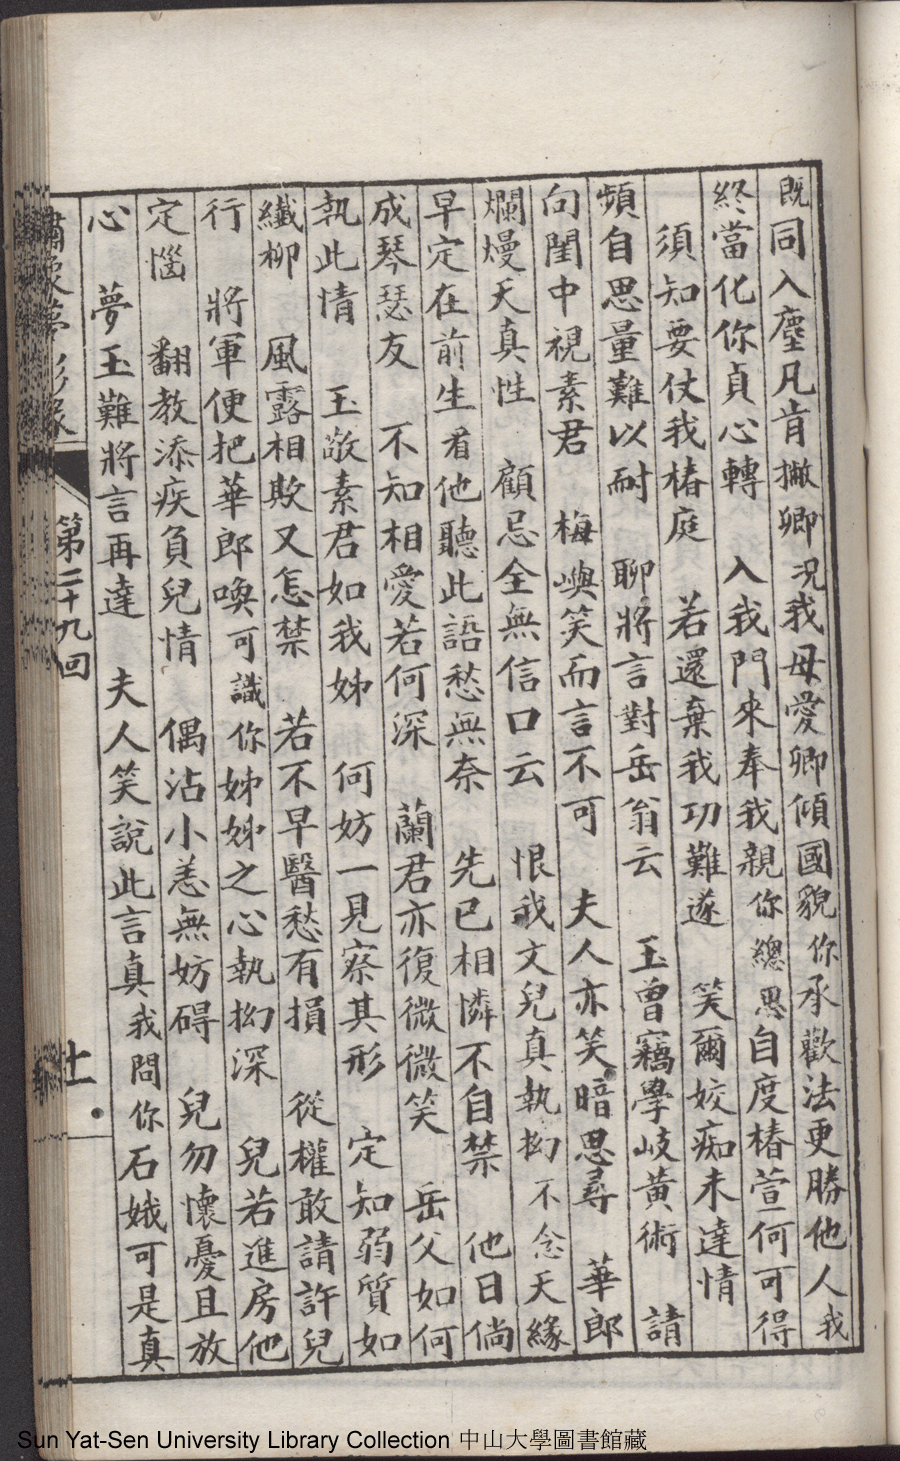 既同入塵凡肯撇卿况我母愛卿傾國貌你承歡法更勝他人我
終當化你貞心轉　入我門來奉我親你總思自度椿萱何可得
須知要仗我椿庭　若還棄我功難遂　笑爾姣痴未達情
頻自思量難以耐　聊將言對岳翁云　玉曾竊學岐黃術　請
向閨中視素君　梅嶼笑而言不可　夫人亦笑暗思尋　華郎
爛熳天真性　顧忌全無信口云　恨我文兒真執拗不念天緣
早定在前生看他聽此語愁無奈　先已相憐不自禁　他日倘
成琴瑟友　不知相愛若何深　蘭君亦復微微笑　岳父如何
執此情　玉敬素君如我姊　何妨一見察其形　定知弱質如
纖柳　風露相欺又怎禁　若不早醫愁有損　從權敢請許兒
行　將軍便把華郎喚可識你姊姊之心執拗深　兒若進房他
定惱　翻教添疾負兒情　偶沾小恙無妨碍　兒勿懷憂且放
心　夢玉難將言再達　夫人笑說此言真我問你石娥可是真
第二十九回
十一
Sun Yat-Sen University Library Collection 中山大學圖書館藏